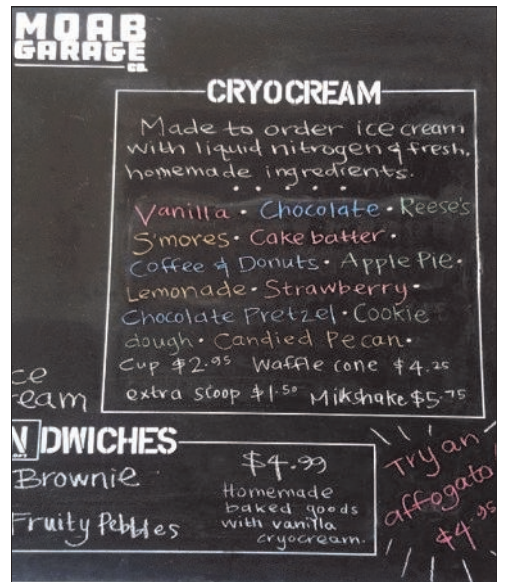 MOAB
GARAGE
CO.
CRYOCREAM
Made to order ice cream
with liquid nitrogen & fresh,
homemade ingredients.
Vanilla • Chocolate • Reese's
S'mores • Cake batter •
Coffee & Donuts • Apple Pie •
Lemonade • Strawberry •
Chocolate Pretzel • Cookie
dough • Candied Pecan •
Cup $2.95 Waffle cone $4.25
extra scoop $1.50 Milkshake $5.75
ce
eam
N DWICHES
Brownie
Fruity Pebbles
$4.99
Homemade
baked goods
with vanilla
cryocream.
Try an
affogato
$4.95